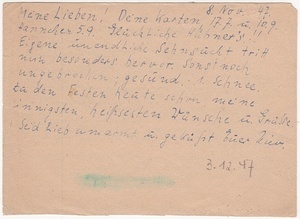 Meine Lieben! Deine Karten 17.7. u. 10.9
8. Nov. 47
5.9. Glückliche
Eigene unendliche Sehnsucht tritt
nun besonders hervor, sonst noch
ungebrochen, gesund. Schnee,
zu den Festen heute schon meine
innigsten, heißesten Wünsche u. Grüße.
Seid lieb umarmt u. geküßt Euer
3.12.47